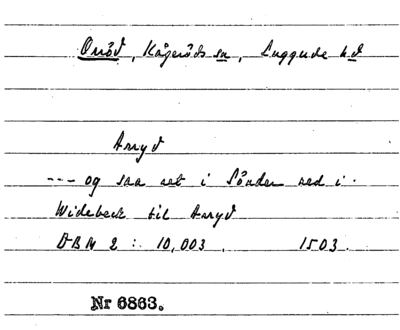 Onröd, Kågeröds sn, Luggude hd
Anryd
--- og saa ret i Sönder ned i
Widebeck til Anryd
DBM 2 : 10,003. 1503.
Nr 6863.